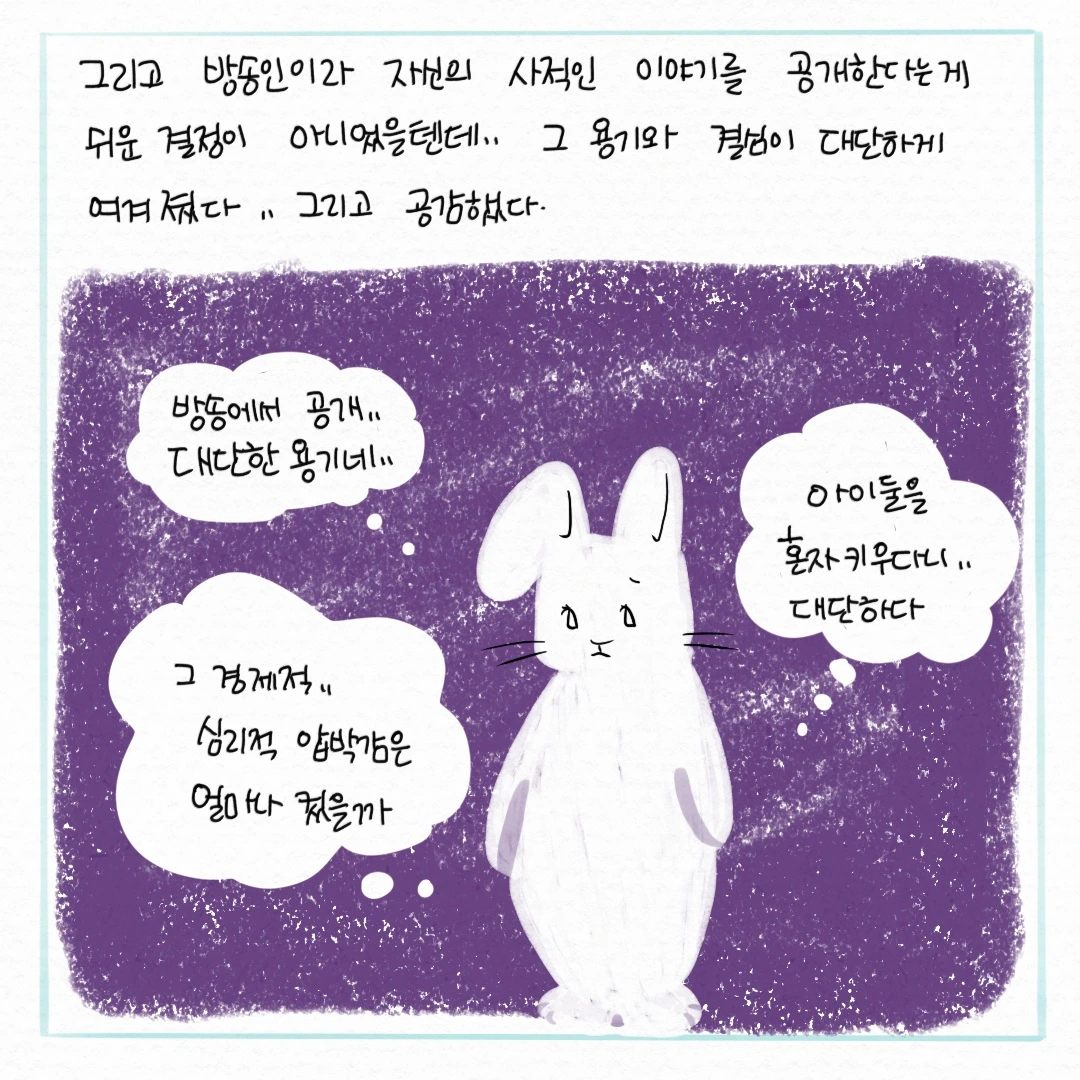 그리고 방송인이라 자신의 사적인 이야기를 공개한다는게
쉬운 결정이 아니었을텐데.. 그 용기와 결심이 대단하게
여겨졌다.. 그리고 공감했다.
방송에서 공개..
대단한 용기네..
아이둘을
혼자키우다니..
대단하다
그 경제적..
심리적 압박감은
얼마나 컸을까